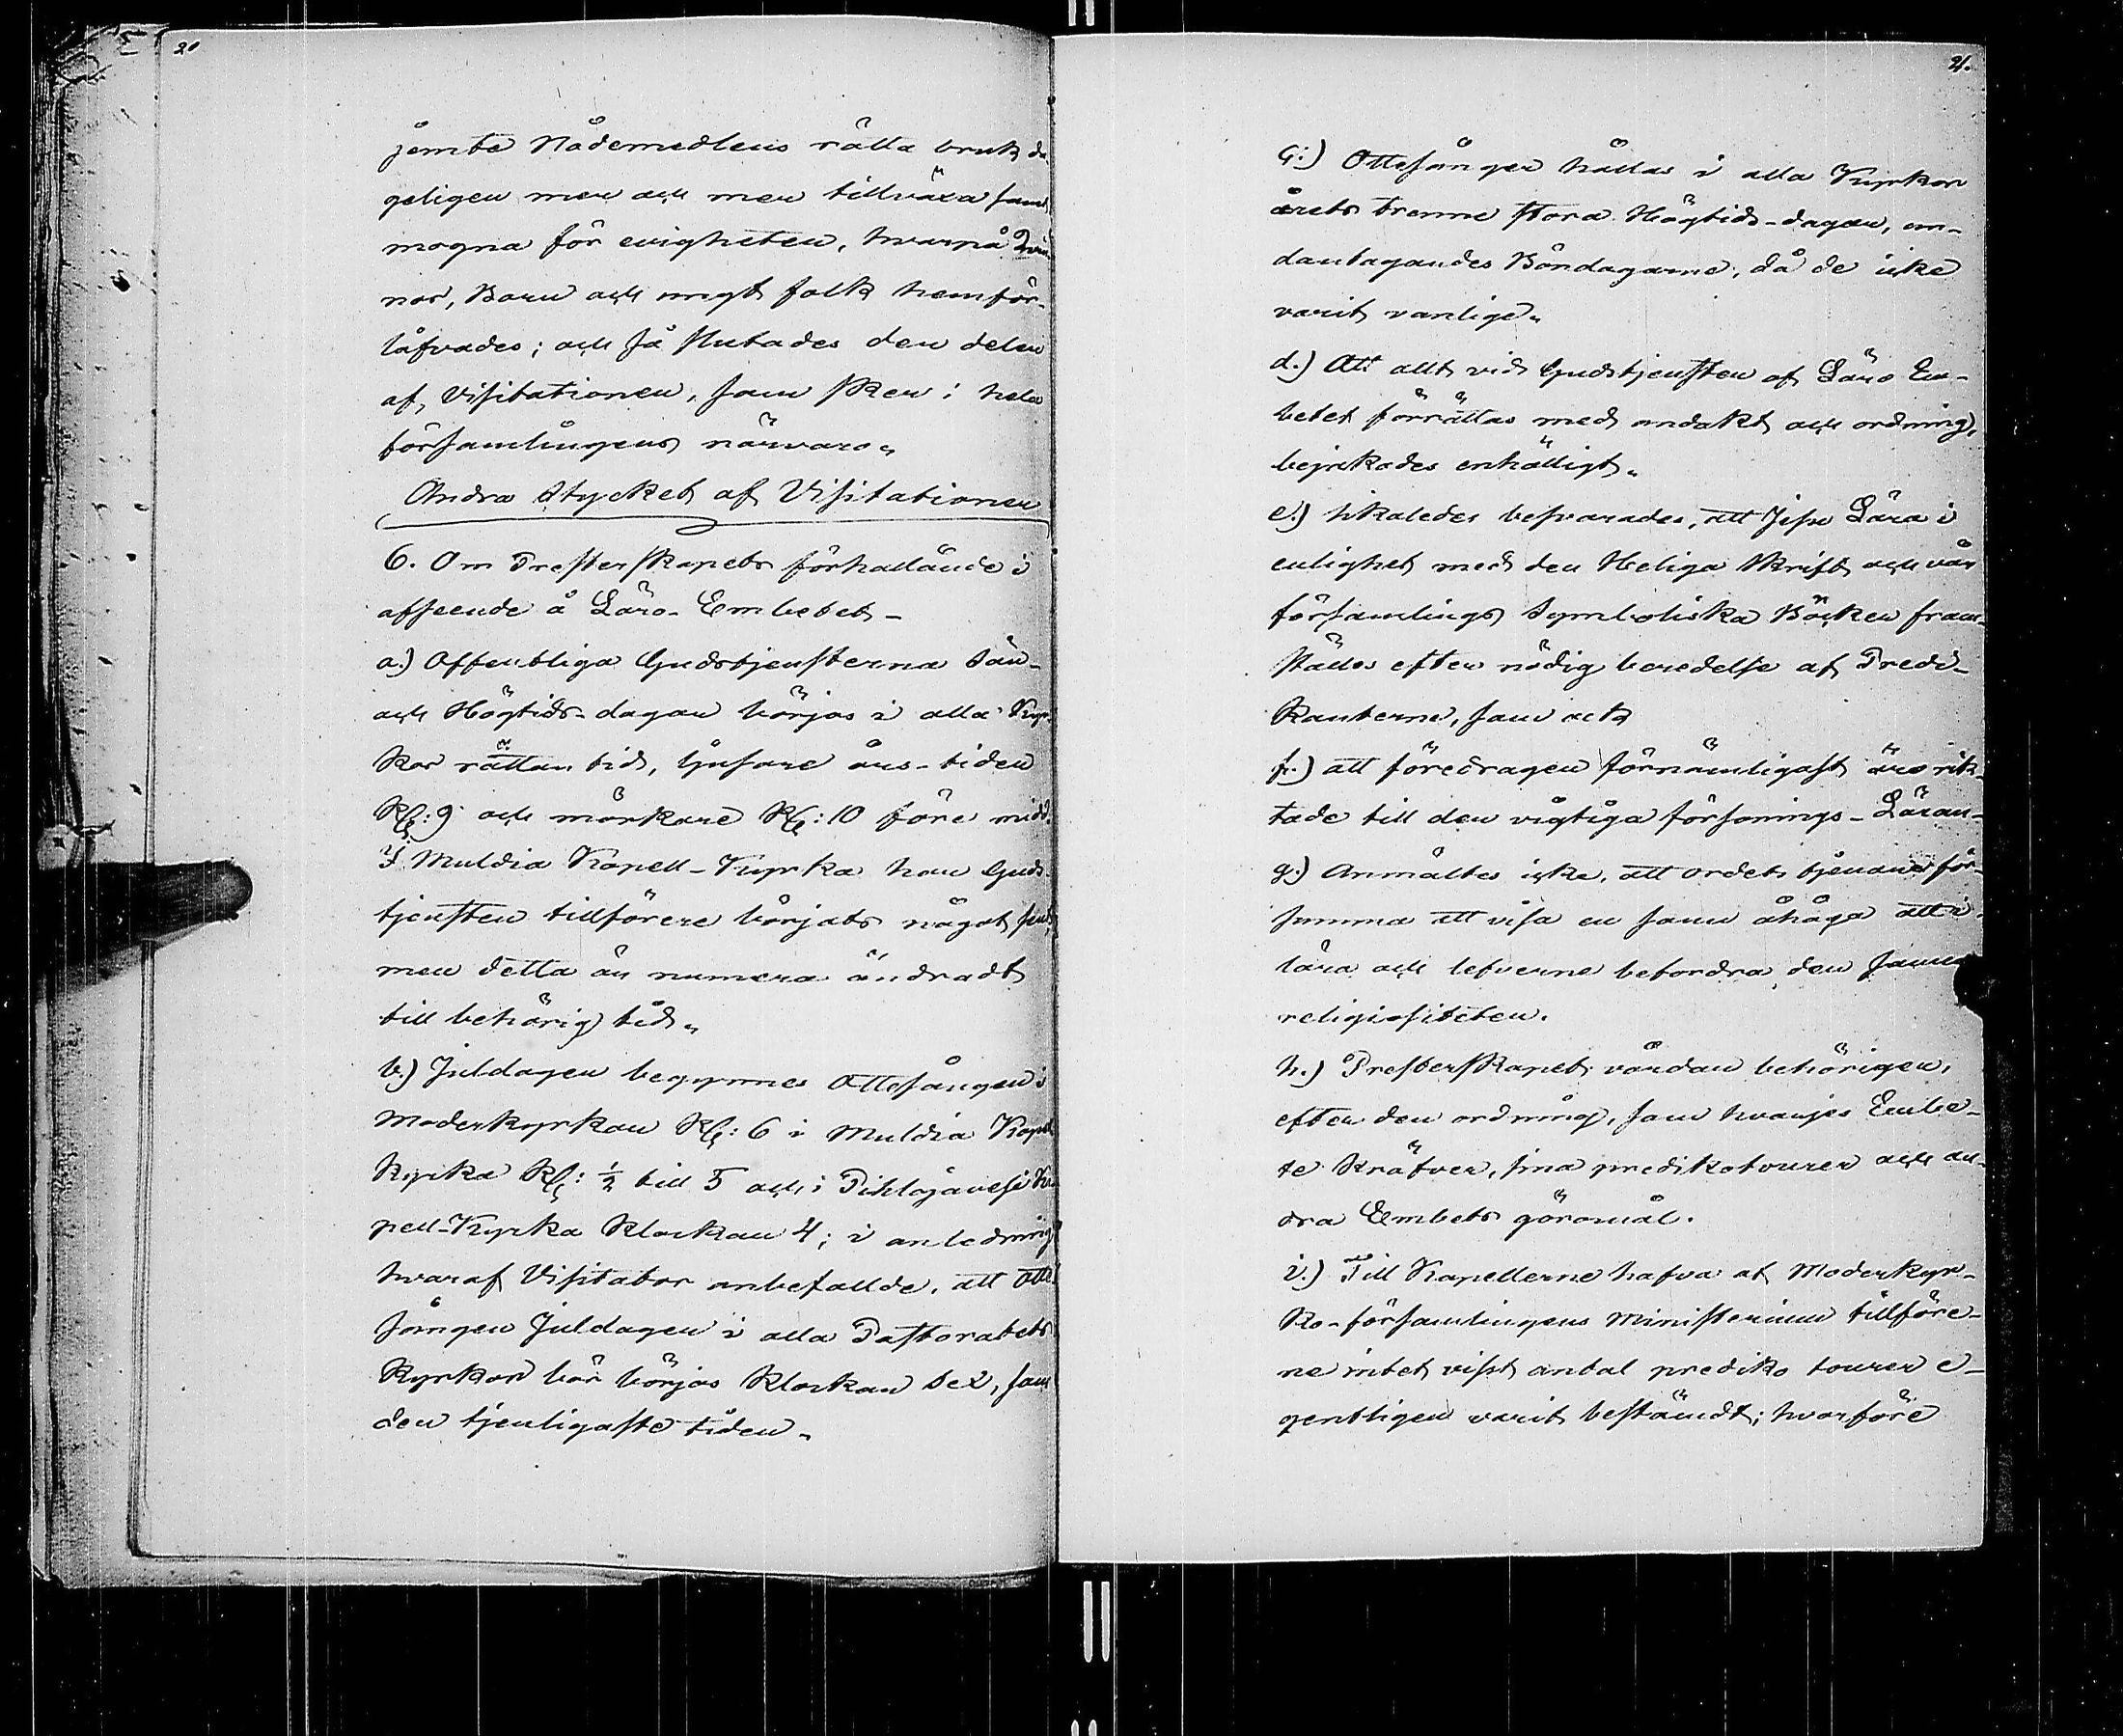 20
jemte Nådemedlens rätta bruk da-
geligen mer och mer tillväxa samt
mogna för evigheten, hvarpå Qvin-
nor, Barn och ungt folk hemför-
låfvades; och så slutades den delen
af Visitationen, som sker i hela
församlingens närvaro.
Andra Stycket af Visitationen
6. Om Presterskapets förhållande i
afseende å Läro-Embetet
a.) Offentliga Gudstjensterna Sön-
och Högtids-dagar börjas i alla Kyr-
kor i rättan tid, ljusare års-tiden
Kl: 9 och mörkare Kl: 10 före midd.
I Muldia Kapell-Kyrka har Guds-
tjensten tillförene börjats något sent,
men detta är numera ändradt
till behörig tid.
b.) Juldagen begynnes Ottesången i
Moderkyrkan Kl: 6 i Muldia Kapell
Kyrka Kl: ½ till 5 och i Pihlajavesi Ka-
pell-Kyrka Klockan 4; i anledning
hvaraf Visitator anbefallde, att Otte-
sången Juldagen i alla Pastoratets
Kyrkor bör börjas Klockan Sex, som
den tjenligaste tiden.
21.
c:) Ottesånger hållas i alla Kyrkor
årets trenne stora Högtids-dagar, un-
dantagandes Böndagarne, då de icke
varit vanlige.
d.) Att allt vid Gudstjensten af Läro Em-
betet förrättas med andakt och ordning,
bejakades enhälligt.
e.) likaledes besvarades, att Jesu Lära i
enlighet med den Heliga Skrift och vår
församlings Symboliska Böcker fram-
ställes efter nödig beredelse af Predi-
kanterne, som ock
f.) att föredragen förnämligast äro rik-
tade till den vigtiga försonings-Läran.
g.) Anmältes icke, att ordets tjenare för-
summa att visa en sann åhåga att i
lära och lefverne befordra den sanna
religiositeten.
h.) Presterskapet vårdar behörigen,
efter den ordning, som hvarjes Embe-
te kräfver, sina predikotourer och an-
dra Embets göromål.
i.) Till Kapellerne hafva af Moderkyr-
ko-församlingens Ministerium tillföre-
ne intet visst antal prediko tourer e-
gentligen varit bestämdt; hvarföre